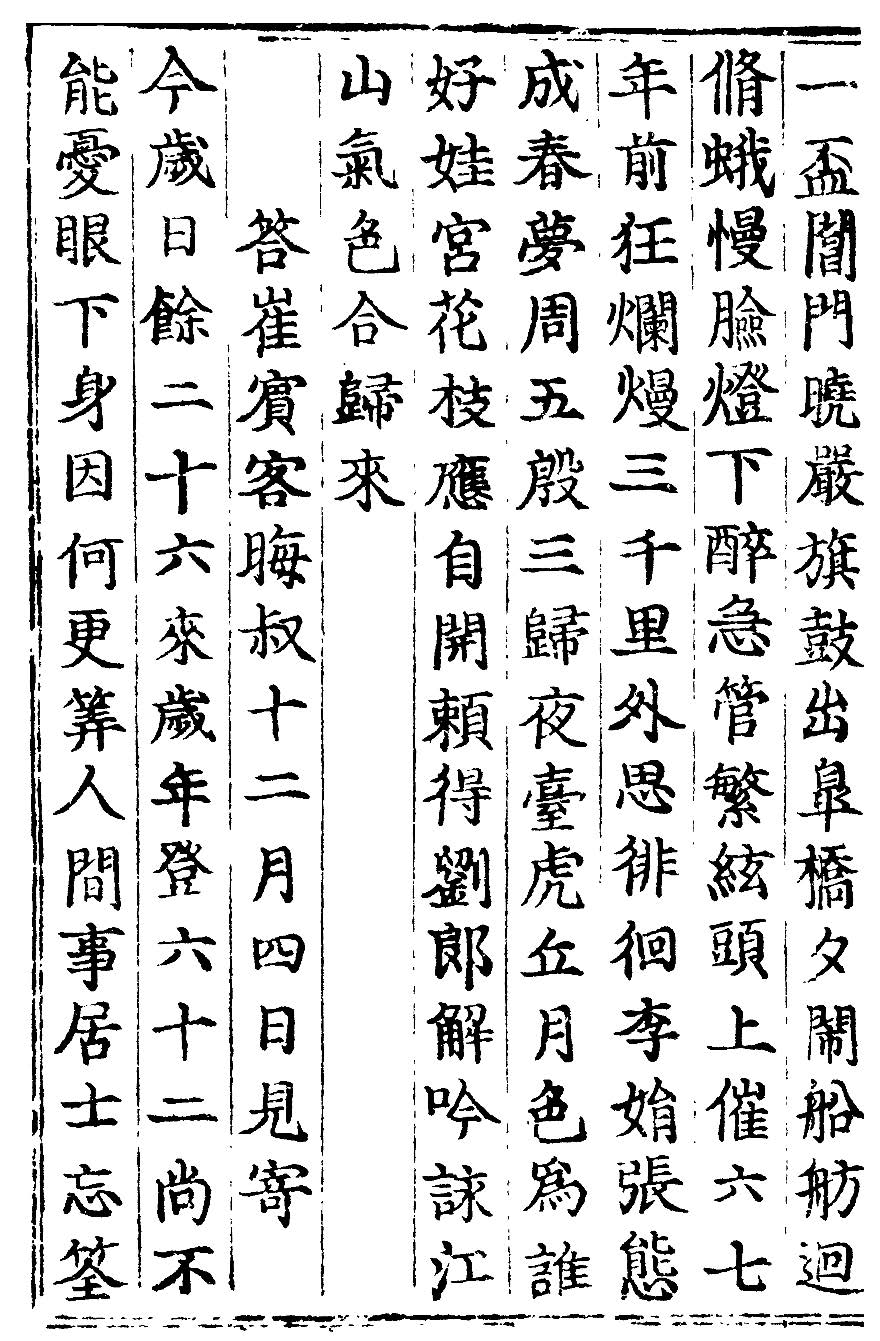 一盃閶門曉嚴旗鼓出皐橋夕鬧船舫迴
脩蛾慢臉燈下醉急管繁絃頭上催六七
年前狂爛熳三千里外思徘徊李娟張態
成春夢周五殷三歸夜臺虎丘月色爲誰
好娃宮花枝應自開賴得劉郎解吟詠江
山氣色合歸來
答崔賓客晦叔十二月四日見寄
今歲日餘二十六來歲年登六十二尚不
能憂眼下身因何更筭人間事居士忘筌